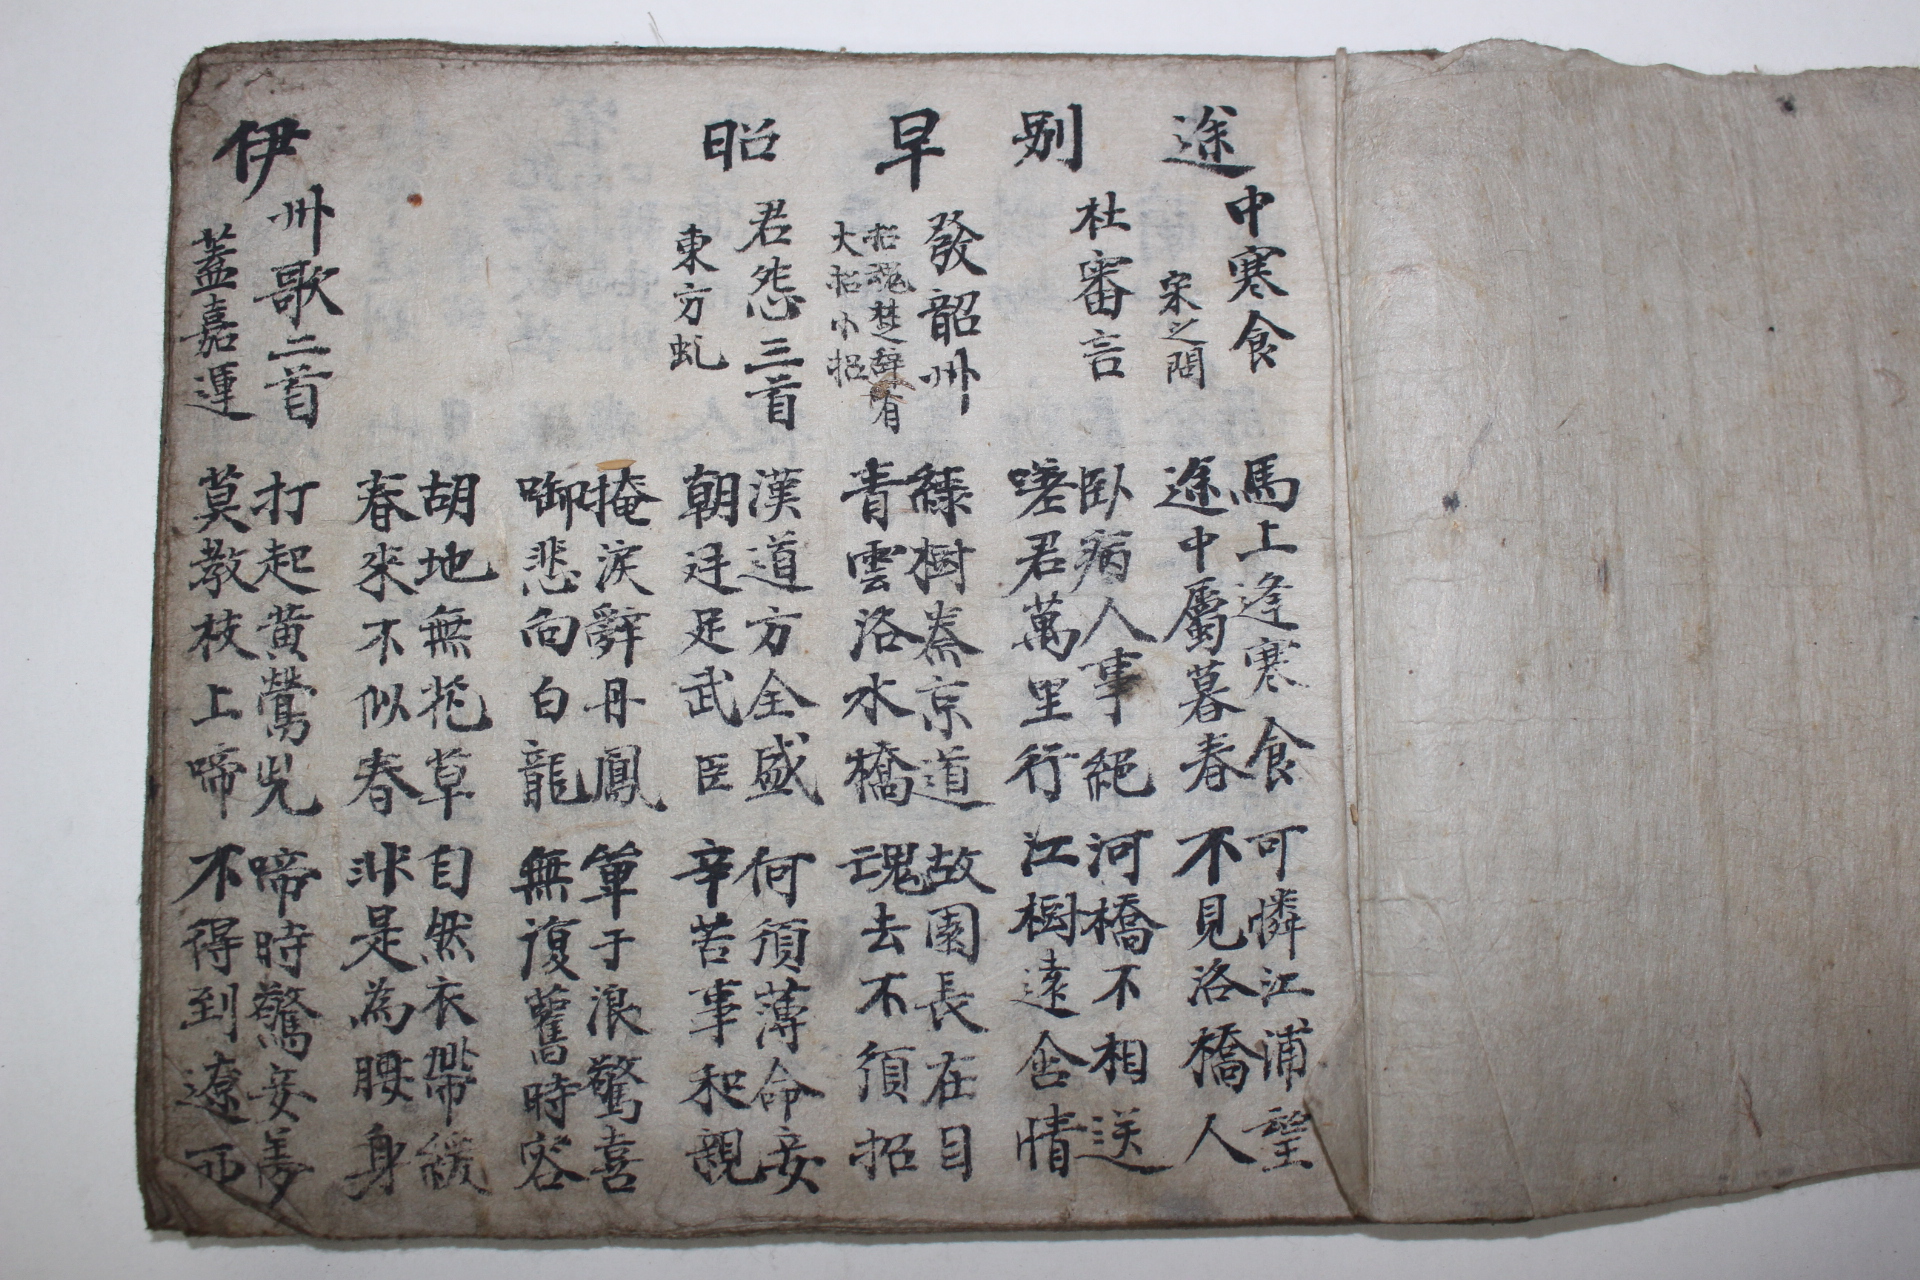 途中寒食
宋之問
馬上逢寒食
途中屬暮春
可憐江浦望
不見洛橋人
別杜審言
臥病人事絕
嗟君萬里行
河橋不相送
江樹遠含情
早發韶州
招魂楚辭有
大招小招
綠樹秦京道
青雲洛水橋
故園長在目
魂去不須招
昭君怨三首
東方虬
漢道方全盛
朝廷足武臣
何須薄命妾
辛苦事和親
掩淚辭丹鳳
啣悲向白龍
單于浪驚喜
無復舊時容
胡地無花草
春來不似春
自然衣帶緩
非是為腰身
伊州歌二首
蓋嘉運
打起黃鶯兒
莫教枝上啼
啼時驚妾夢
不得到遼西